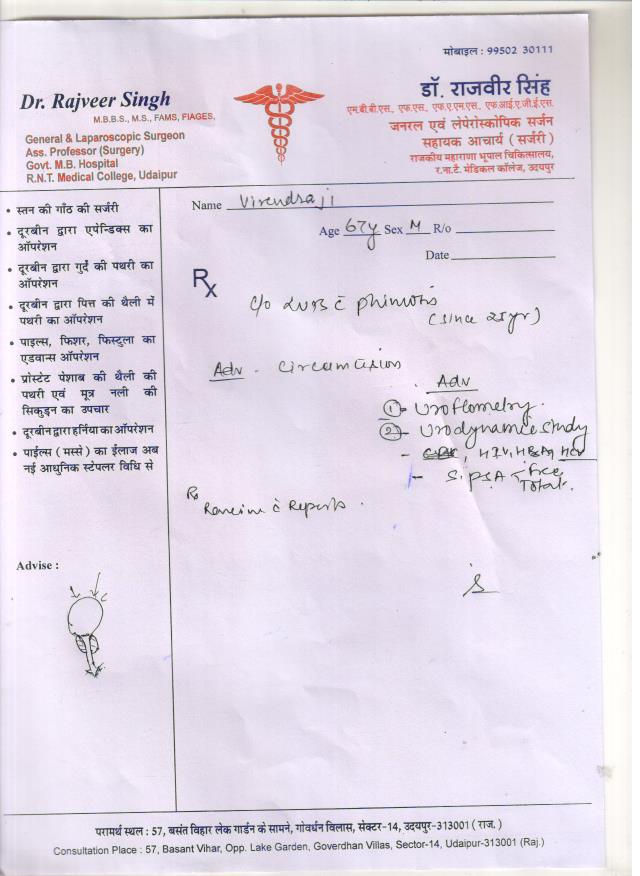 मोबाइल : 99502 30111
Dr. Rajveer Singh
M.B.B.S., M.S., FAMS, FIAGES,
General & Laparoscopic Surgeon
Ass. Professor (Surgery)
Govt. M.B. Hospital
R.N.T. Medical College, Udaipur
डॉ. राजवीर सिंह
एम.बी.बी.एस., एफ.एस., एफ.ए.एम.एस., एफ.आई.ए.जी.ई.एस.
जनरल एवं लेपेरोस्कोपिक सर्जन
सहायक आचार्य (सर्जरी)
राजकीय महाराणा भूपाल चिकित्सालय,
र.ना.टे. मेडिकल कॉलेज, उदयपुर
• स्तन की गाँठ की सर्जरी
• दूरबीन द्वारा एपेन्डिक्स का
ऑपरेशन
• दूरबीन द्वारा गुर्दे की पथरी का
ऑपरेशन
• दूरबीन द्वारा पित्त की थैली में
पथरी का ऑपरेशन
• पाइल्स, फिशर, फिस्टुला का
एडवान्स ऑपरेशन
• प्रोस्टेट पेशाब की थैली की
पथरी एवं मूत्र नली की
सिकुड़न का उपचार
• दूरबीन द्वारा हर्निया का ऑपरेशन
• पाईल्स (मस्से) का ईलाज अब
नई आधुनिक स्टेपलर विधि से
Advise :
Name Virendraji
Age 67y Sex M R/o
Date
Rx
c/o phimosis
(since 25yr)
Adv - Circumcision
Adv
① - Uroflometry.
② - Urodynamic study
- , HIV, HBsAg HCV
- S. PSA < Free
Total.
Review c Reports.
परामर्थ स्थल : 57, बसंत विहार लेक गार्डन के सामने, गोवर्धन विलास, सेक्टर-14, उदयपुर-313001 ( राज. )
Consultation Place : 57, Basant Vihar, Opp. Lake Garden, Goverdhan Villas, Sector-14, Udaipur-313001 (Raj.)